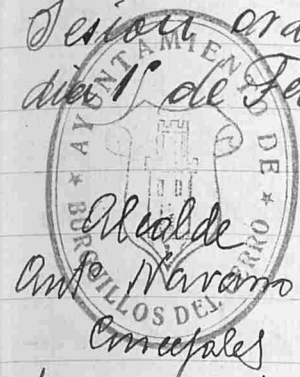 Sesion ord
dia 1º de Fe
AYUNTAMIENTO DE
* BURGUILLOS DEL CERRO *
Alcalde
Antº Navarro
Concejales